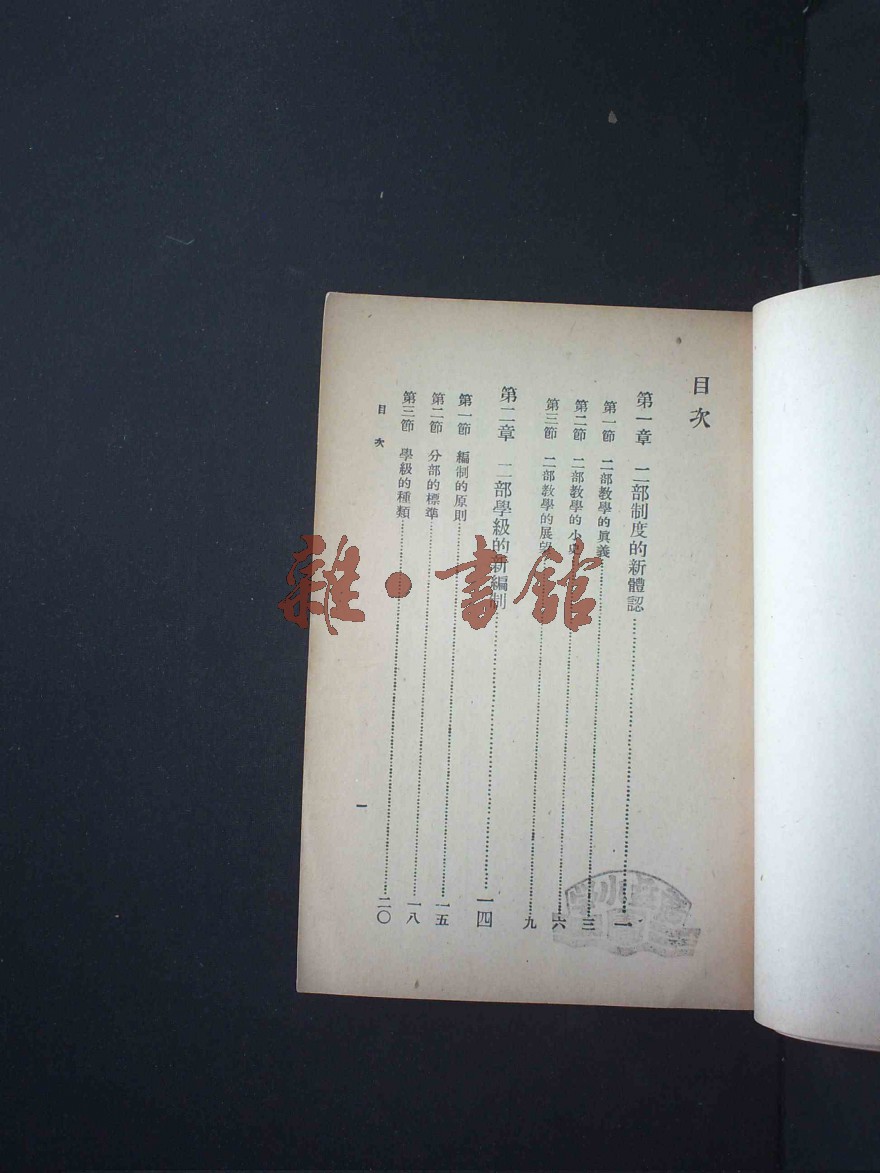 目次
第一章 二部制度的新體認……一
第一節 二部教學的眞義……三
第二節 二部教學的小史……六
第三節 二部教學的展望……九
第二章 二部學級的新編制……一四
第一節 編制的原則……一五
第二節 分部的標準……一八
第三節 學級的種類……二〇
目次
一
雜·書館